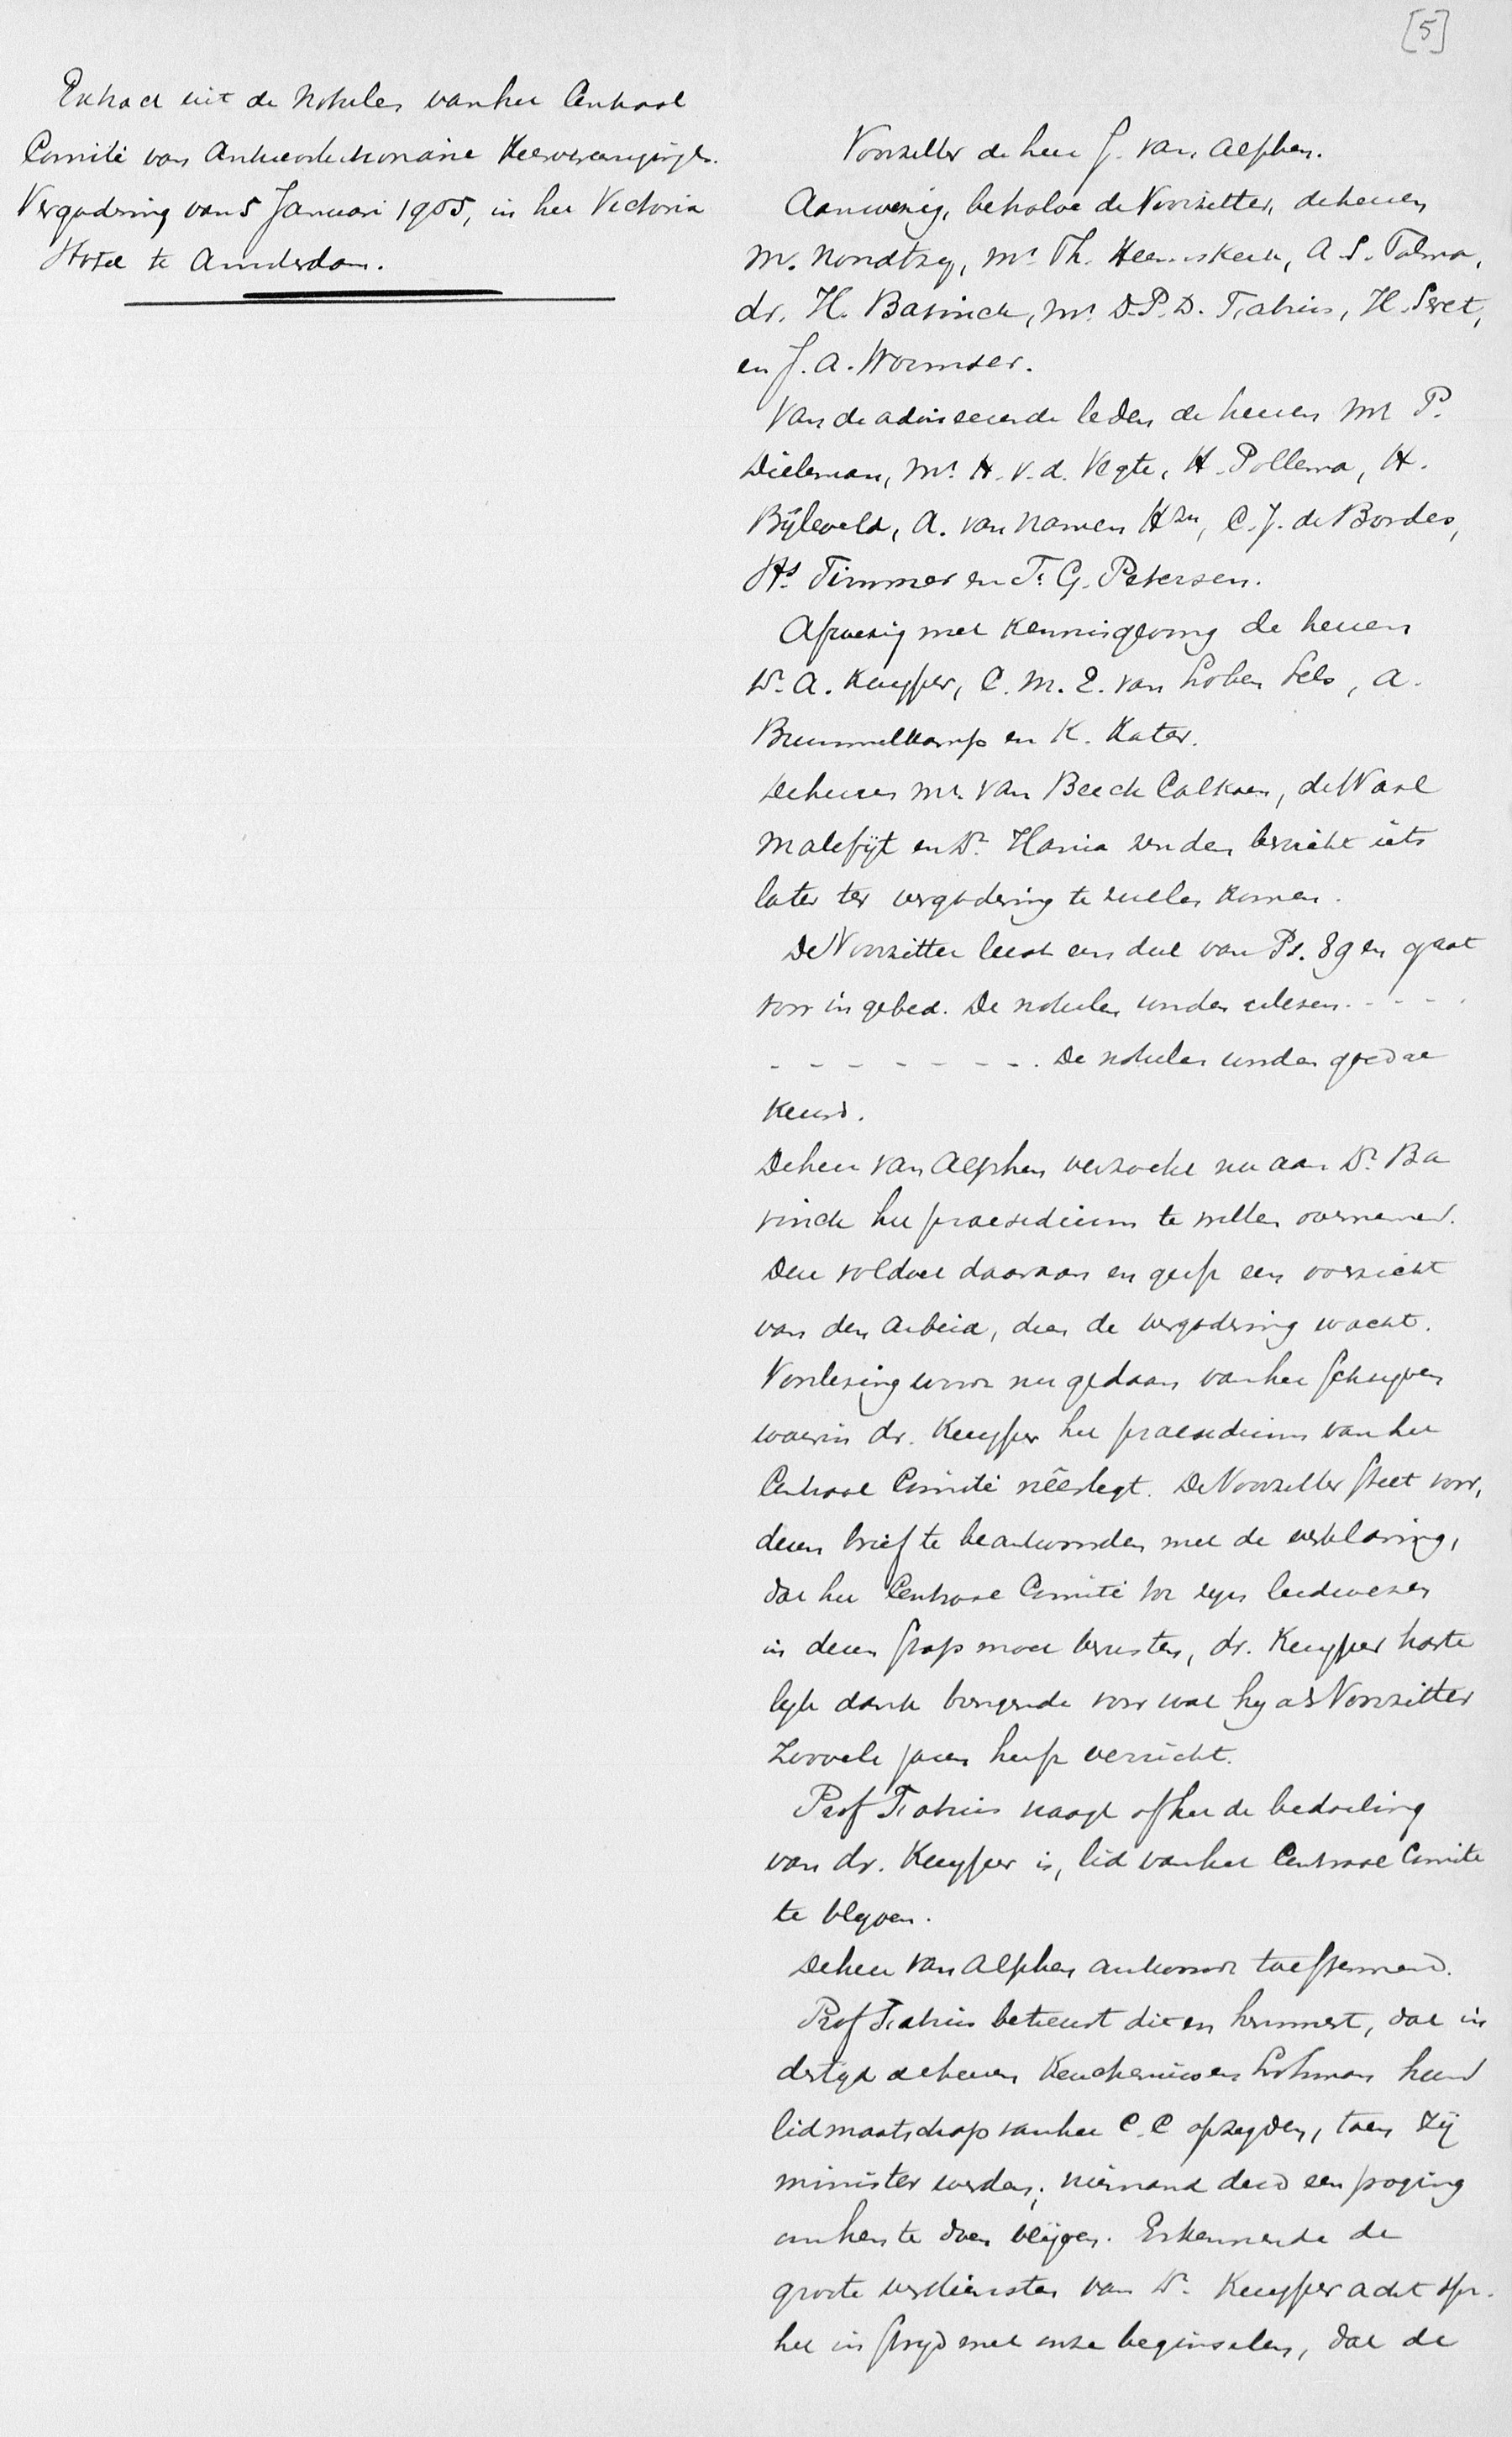 [5]
Extract uit de Notulen van het Centraal
Comité van Antirevolutionaire Kiesvereenigingen.
Vergadering van 5 Januari 1905, in het Victoria
Hotel te Amsterdam.
Voorzitter de heer J. van Alphen.
Aanwezig, behalve de Voorzitter, de heeren
M. Noordtzij, Mr. Th. Heemskerk, A. S. Talma,
dr. H. Bavinck, Mr. D.P.D. Fabius, H. Seret,
en J. A. Wormser.
Van de adviseerende leden de heeren Mr P.
Dieleman, Mr. H. v. d. Vegte, H. Pollema, H.
Bijleveld, A. van Namen Hzn, C. J. de Bordes,
Hs. Timmer en F. G. Petersen.
Afwezig met kennisgeving de heeren
Dr. A. Kuyper, C. M. E. van Loben Sels, A.
Brummelkamp en K. Kater.
De heeren Mr. van Beeck Calkoen, de Waal
Malefijt en Dr. Hania zenden bericht iets
later ter vergadering te zullen komen.
De Voorzitter leest een deel van Ps. 89 en gaat
voor in gebed. De notulen worden gelezen. - - - -
- - - - - - - . De notulen worden goedge
keurd.
De heer van Alphen verzoekt nu aan Dr. Ba
vinck het praesidium te willen overnemen.
Deze voldoet daaraan en geeft een overzicht
van den arbeid, dien de vergadering wacht.
Voorlezing wordt nu gedaan van het schrijven
waarin dr. Kuyper het praesidium van het
Centraal Comité nêerlegt. De Voorzitter stelt voor,
dezen brief te beantwoorden met de verklaring,
dat het Centraal Comité tot zijn leedwezen
in dezen stap moet berusten, dr. Kuyper harte
lijk dank brengende voor wat hij als Voorzitter
zoovele jaren heeft verricht.
Prof Fabius vraagt of het de bedoeling
van dr. Kuyper is, lid van het Centraal Comite
te blijven.
De heer van Alphen antwoordt toestemmend.
Prof Fabius betreurt dit en herinnert, dat in
dertijd de heeren Keuchenius en Lohman hun
lidmaatschap van het C. C opzegden, toen zij
minister werden; niemand deed een poging
om hen te doen blijven. Erkennende de
groote verdiensten van Dr. Kuyper acht spr.
het in strijd met onze beginselen, dat de